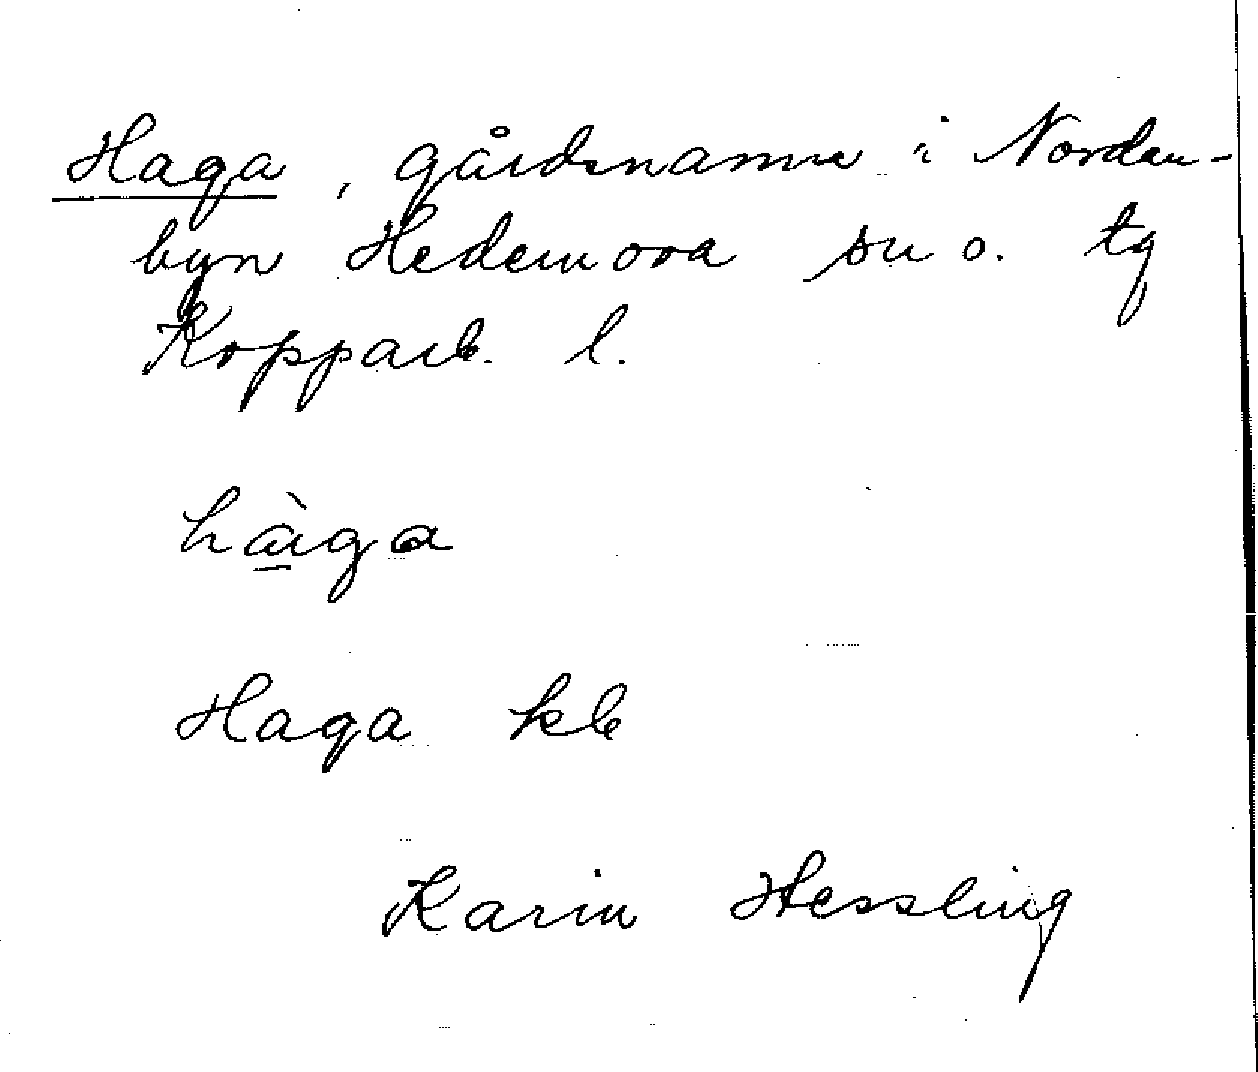 Haga, gårdsnamn i Norden-
byn Hedemora sn o. tg
Kopparb. l.
hàga
Haga kb
Karin Hessling